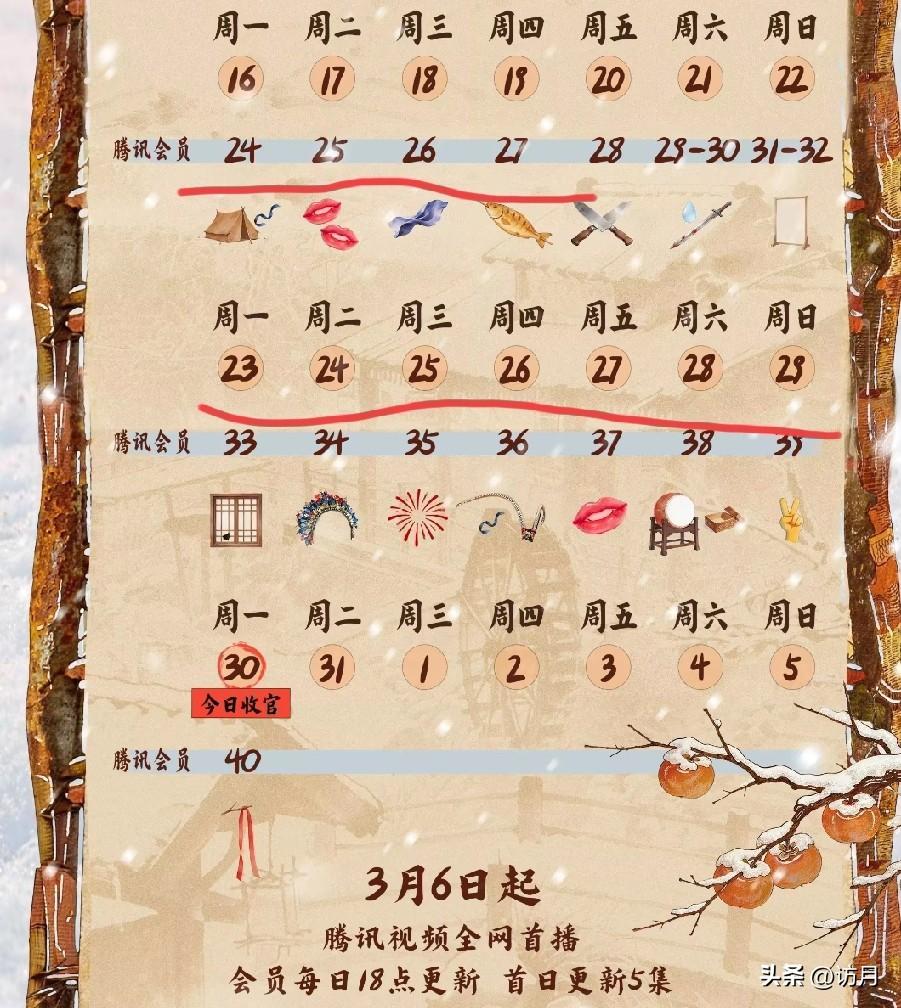 周一 周二 周三 周四 周五 周六 周日
16 17 18 19 20 21 22
腾讯会员 24 25 26 27 28 29-30 31-32
周一 周二 周三 周四 周五 周六 周日
23 24 25 26 27 28 29
腾讯会员 33 34 35 36 37 38 39
周一 周二 周三 周四 周五 周六 周日
30 31 1 2 3 4 5
今日收官
腾讯会员 40
3月6日起
腾讯视频全网首播
会员每日18点更新 首日更新5集
头条 @访月